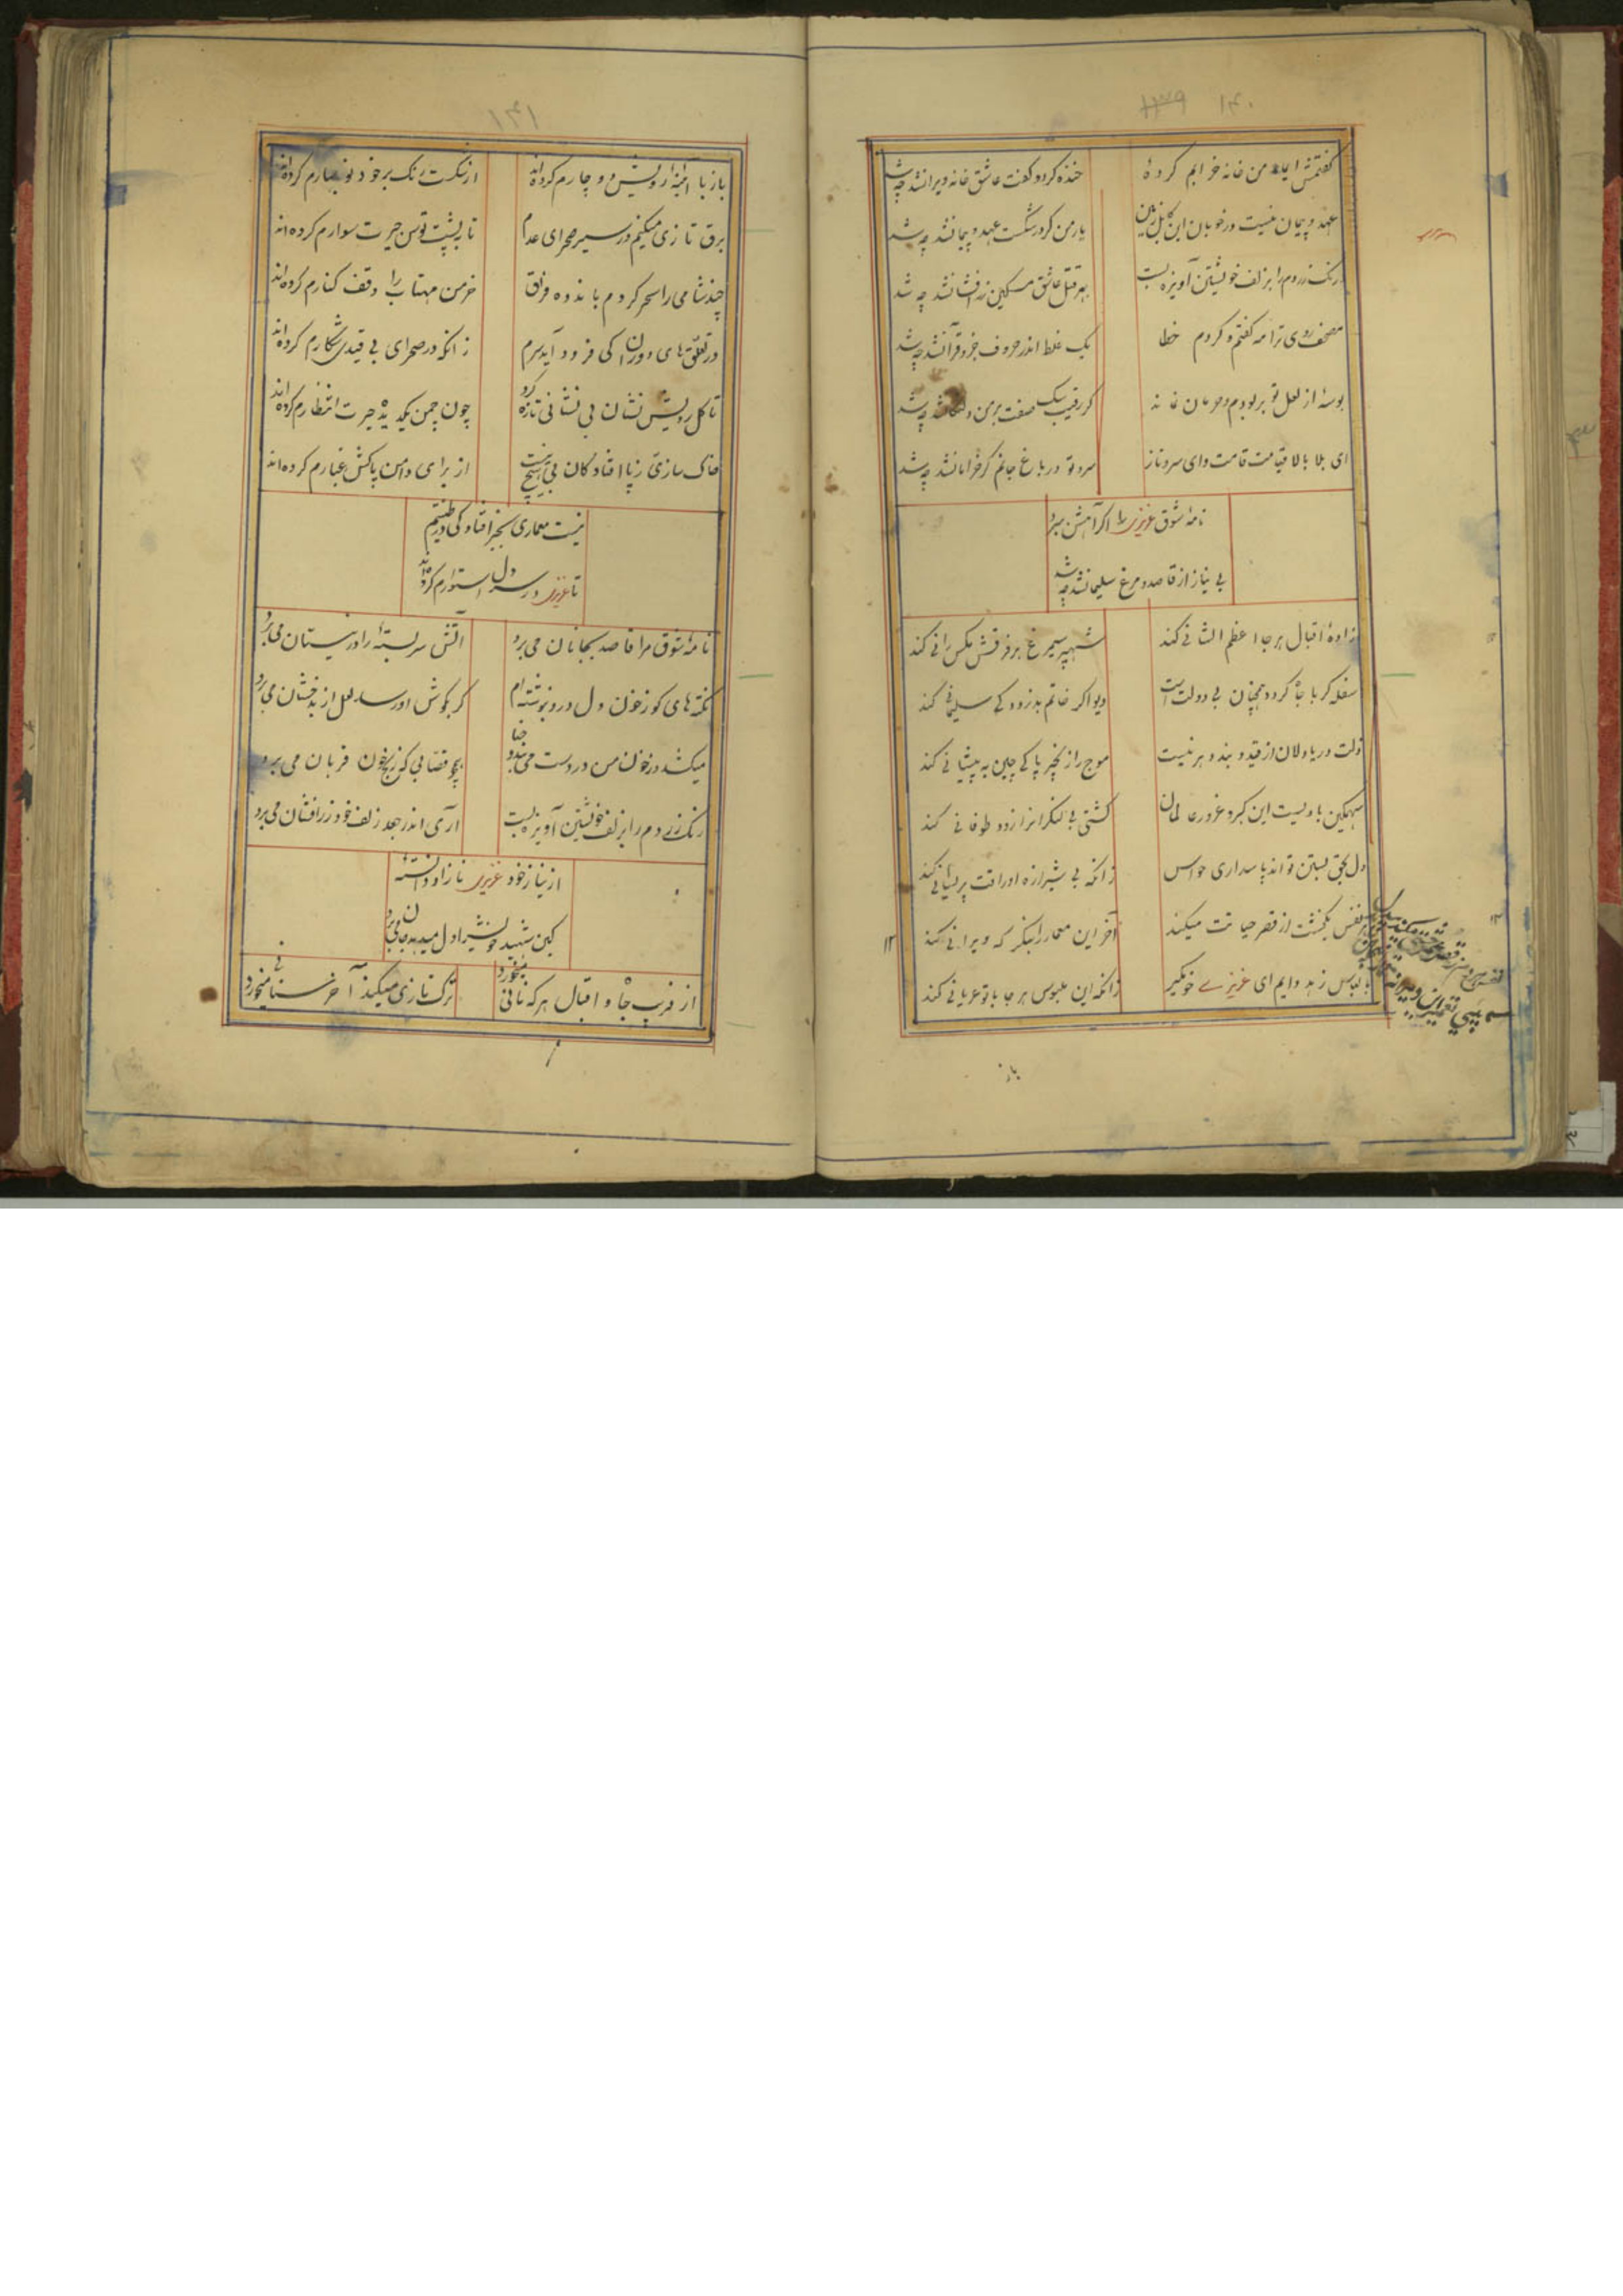 ۱۴۰
گفتمش ای ماه من خانه خرابم کردهٔ
خنده کرد و گفت عاشق خانه ویرانشد چه شد
عهد و پیمان نیست در خوبان این
یار من کر در شکست عهد و پیمانشد چه شد
رنک زردم را بزلف خویشتن آویزه بست
بهر قتل عاشق مسکین زرافشانشد چه شد
مصحف روی ترا مه گفتم و کردم خطا
یک غلط اندر حروف جزو قرآنشد چه شد
بوسهٔ از لعل تو بر بودم و
کر رقیب سک صفت چه شد
ای بلا بالا قیامت قامت و ای سرو ناز
سرو تو در باغ جانم کر خرامانشد چه شد
نامهٔ شوق عزیزی را اکر آهش برد
بی نیاز از قاصد و مرغ سلیمانشد چه شد
زادهٔ اقبال هر جا اعظم الشانی کند
شهپر سیمرغ بر فرقش مکس رانی کند
سفله کر با جاه کردد همچنان بی دولت است
دیو اکر خاتم بدزدد کی سلیمانی کند
ذلت دریا دلان از قید و بند دهر نیست
موج را زنجیر پا کی چین به پیشانی کند
سهمکین بادیست این کبر و غرور عالمان
کشتی بی لنکر انرا زود طوفانی کند
دل بحق بستن تواند پاسداری حواس
زانکه بی شیرازه اوراقت پریشانی کند
هر نفس یکخشت از قصر حیاتت میکند
آخر این معمار را بنکر که ویرانی کند
با لباس زهد دایم ای عزیزی خو مکیر
زانکه این ملبوس هر جا با تو عریانی کند
باز
۱۴۱
باز با آئینهٔ رویش دو چارم کرده‌اند
از شکست رنک بر خود نوبهارم کرده‌اند
برق تازی میکنم در سیر صحرای عدم
تا به پشت توسن حیرت سوارم کرده‌اند
چند شامی را سحر کردم باندوه فراق
خرمن مهتاب را وقف کنارم کرده‌اند
در تعلق‌های دوران کی فرود آید سرم
زانکه در صحرای بی قیدی شکارم کرده‌اند
تا کل رویش نشان بی نشانی تازه کرد
چون چمن یک دیده حیرت انتظارم کرده‌اند
خاک سازی ز پا افتادکان بی هیچ نیست
از برای دامن پاکش غبارم کرده‌اند
نیست معماری بجز افتادکی در طینتم
تا عزیزی در ره دل استوارم کرده‌اند
نامهٔ شوق مرا قاصد بجانان می برد
آتش سر بسته را در نیستان می برد
نکته های کو ز خون دل درو بنوشته ام
کر بکوش او رسد لعل از بدخشان می برد
میکشد در خون من در دست می بندد حنا
همچو قصابی که رنج خون قربان می برد
رنک زردم را بزلف خویشتن آویزه بست
آری اندر جعد زلف خود زرافشان می برد
از نیاز خود عزیزی ناز او دانستهٔ
کین شهید خویش را دل میدهد جان می برد
از فریب جاه و اقبال هر که نانی میخورد
ترک تازی میکند آخر سنانی میخورد